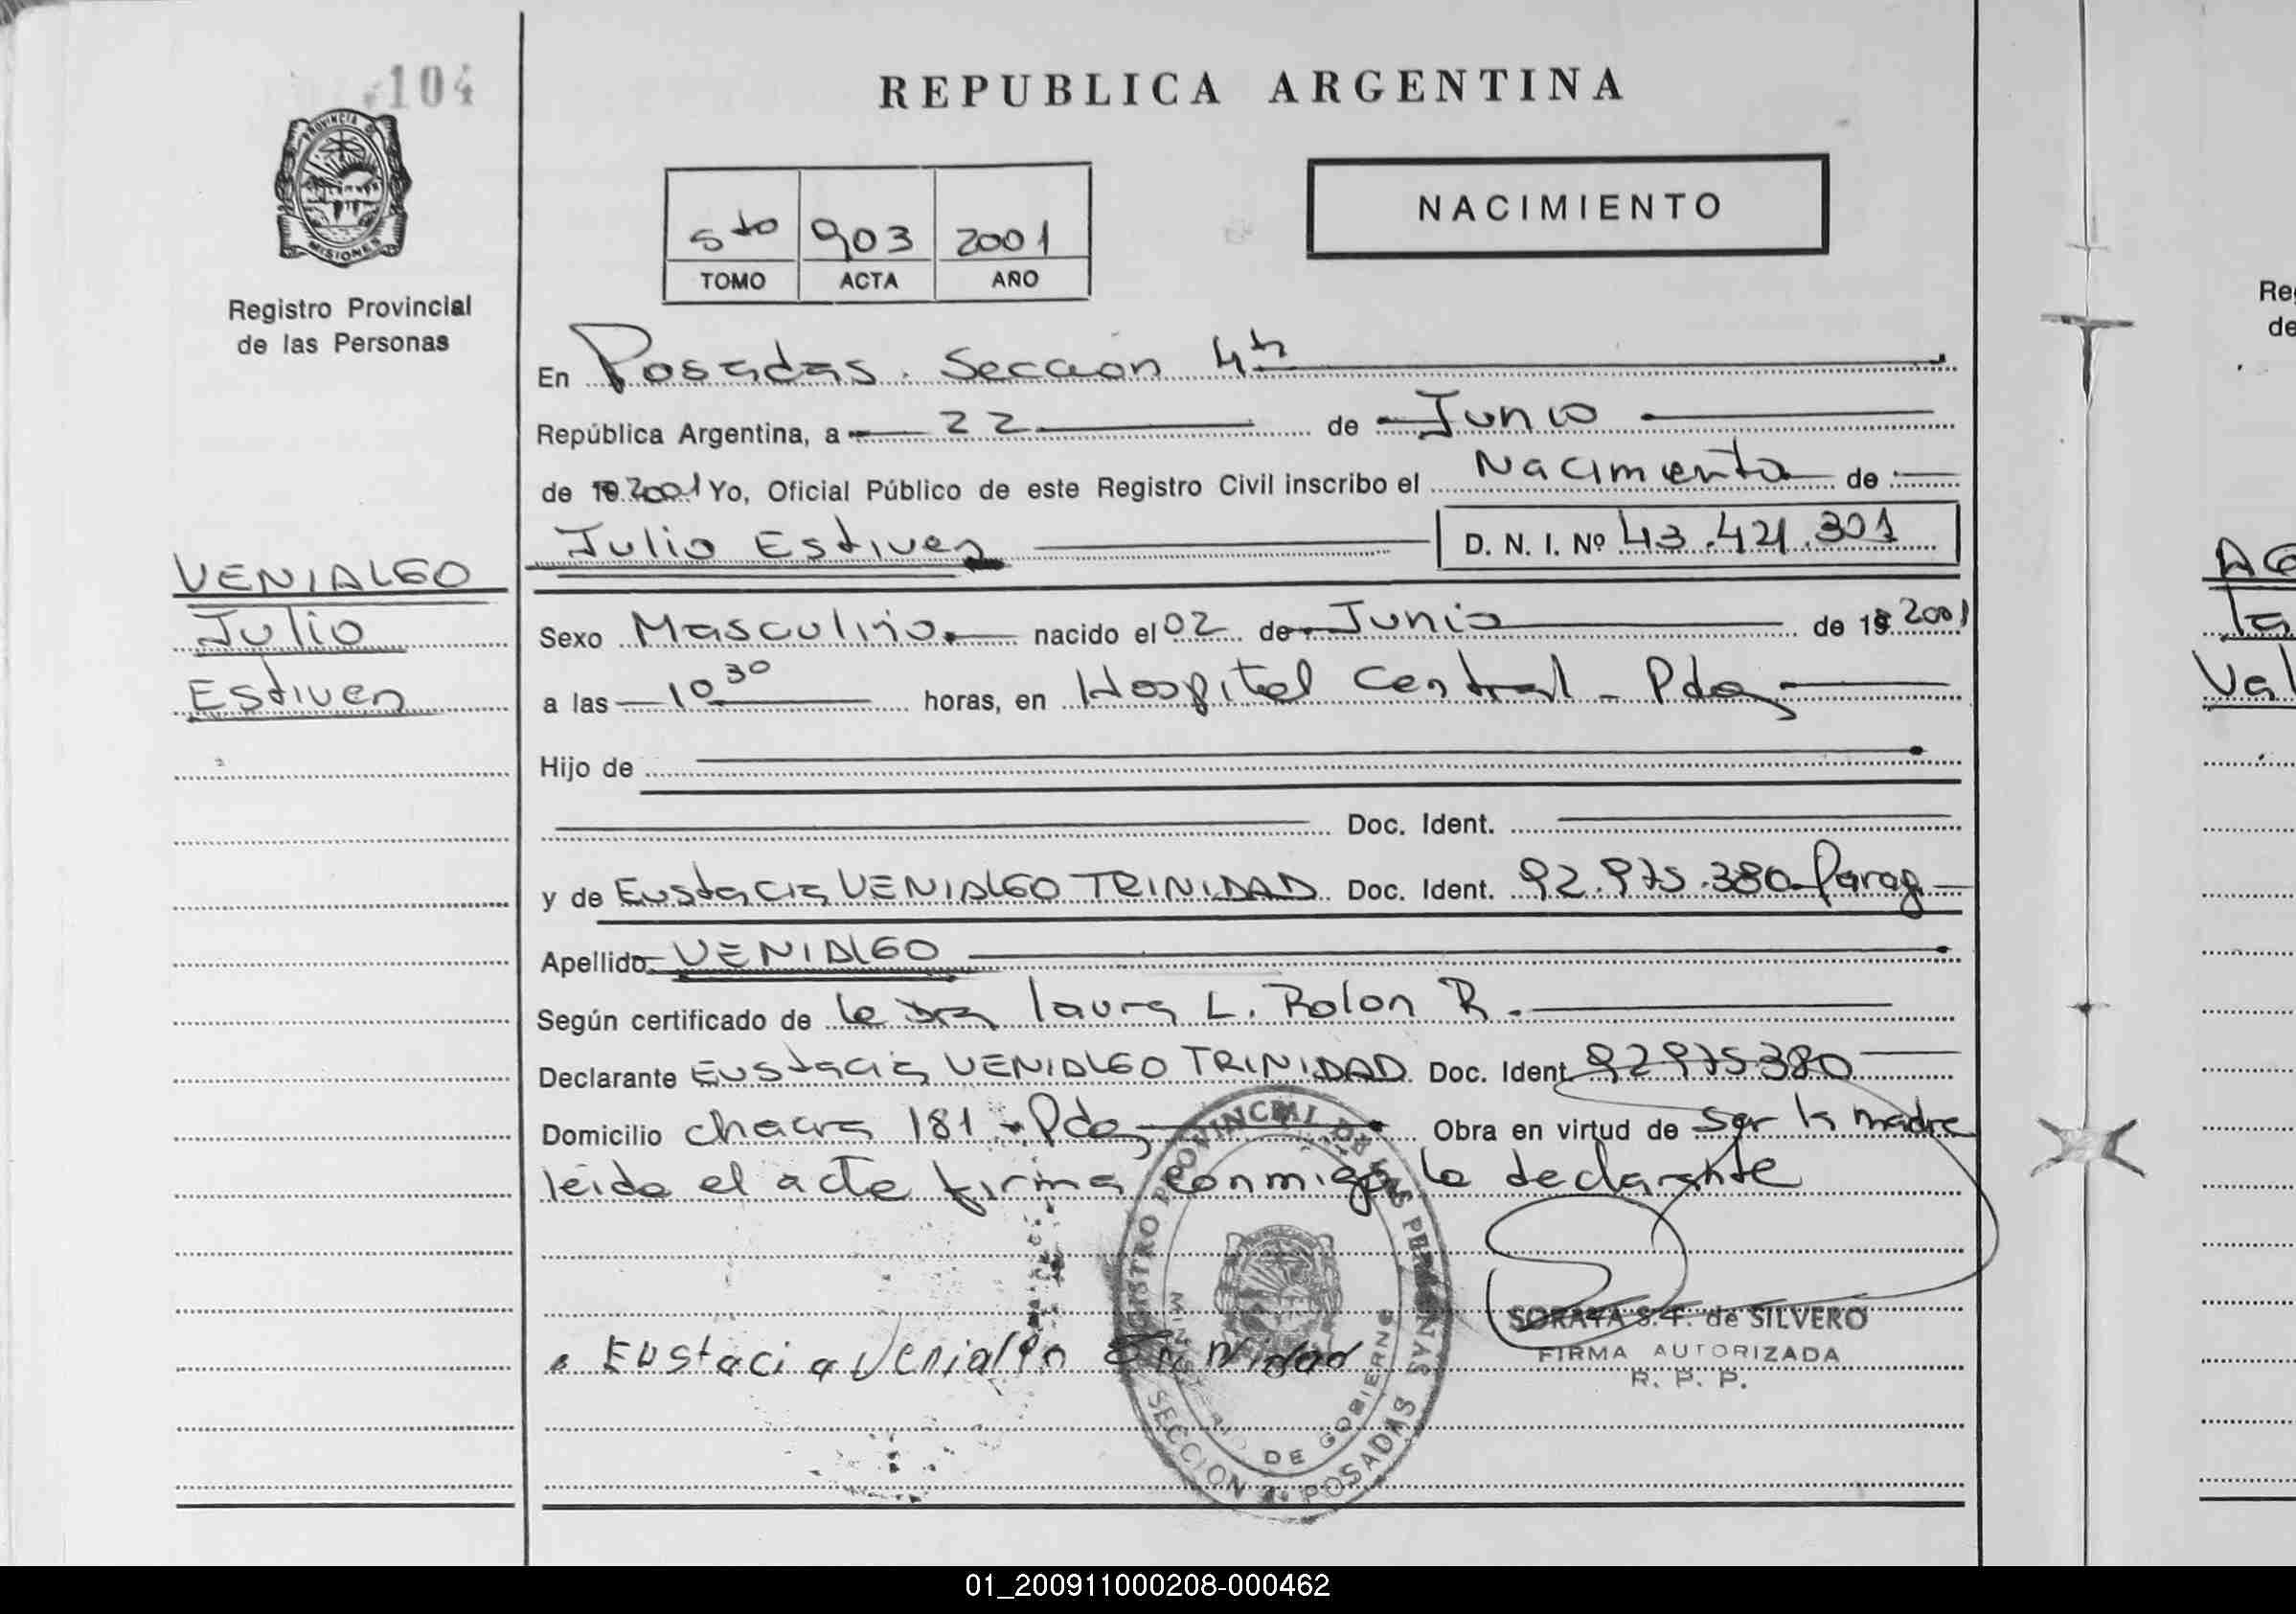 104
PROVINCIA D
MISIONES
Registro Provincial
de las Personas
VENIALGO
Julio
Estiven
REPUBLICA ARGENTINA
NACIMIENTO
5to 903 2001
TOMO ACTA AÑO
En Posadas. Sección 4ta
República Argentina, a 22 de Junio
de 19 2001 Yo, Oficial Público de este Registro Civil inscribo el Nacimiento de
Julio Estiven D. N. I. Nº 43.421.301
Sexo Masculino. nacido el 02 de Junio de 19 2001
a las 10 30 horas, en Hospital Central - Pdas
Hijo de
Doc. Ident.
y de Eustacia VENIALGO TRINIDAD Doc. Ident. 92.975.380 Parag
Apellido VENIALGO
Según certificado de la Dra Laura L. Rolon R.
Declarante Eustacia VENIALGO TRINIDAD Doc. Ident 92975380
Domicilio chacra 181 - Pdas Obra en virtud de ser la madre
leida el acta firma conmigo la declarante
REGISTRO PROVINCIAL DE LAS PERSONAS
MINISTERIO DE GOBIERNO
SECCION 4a POSADAS
SORAYA S. F. de SILVERO
FIRMA AUTORIZADA
R. P. P.
Eustacia Venialgo Trinidad
Re
de
AG
Ta
Val
01_200911000208-000462